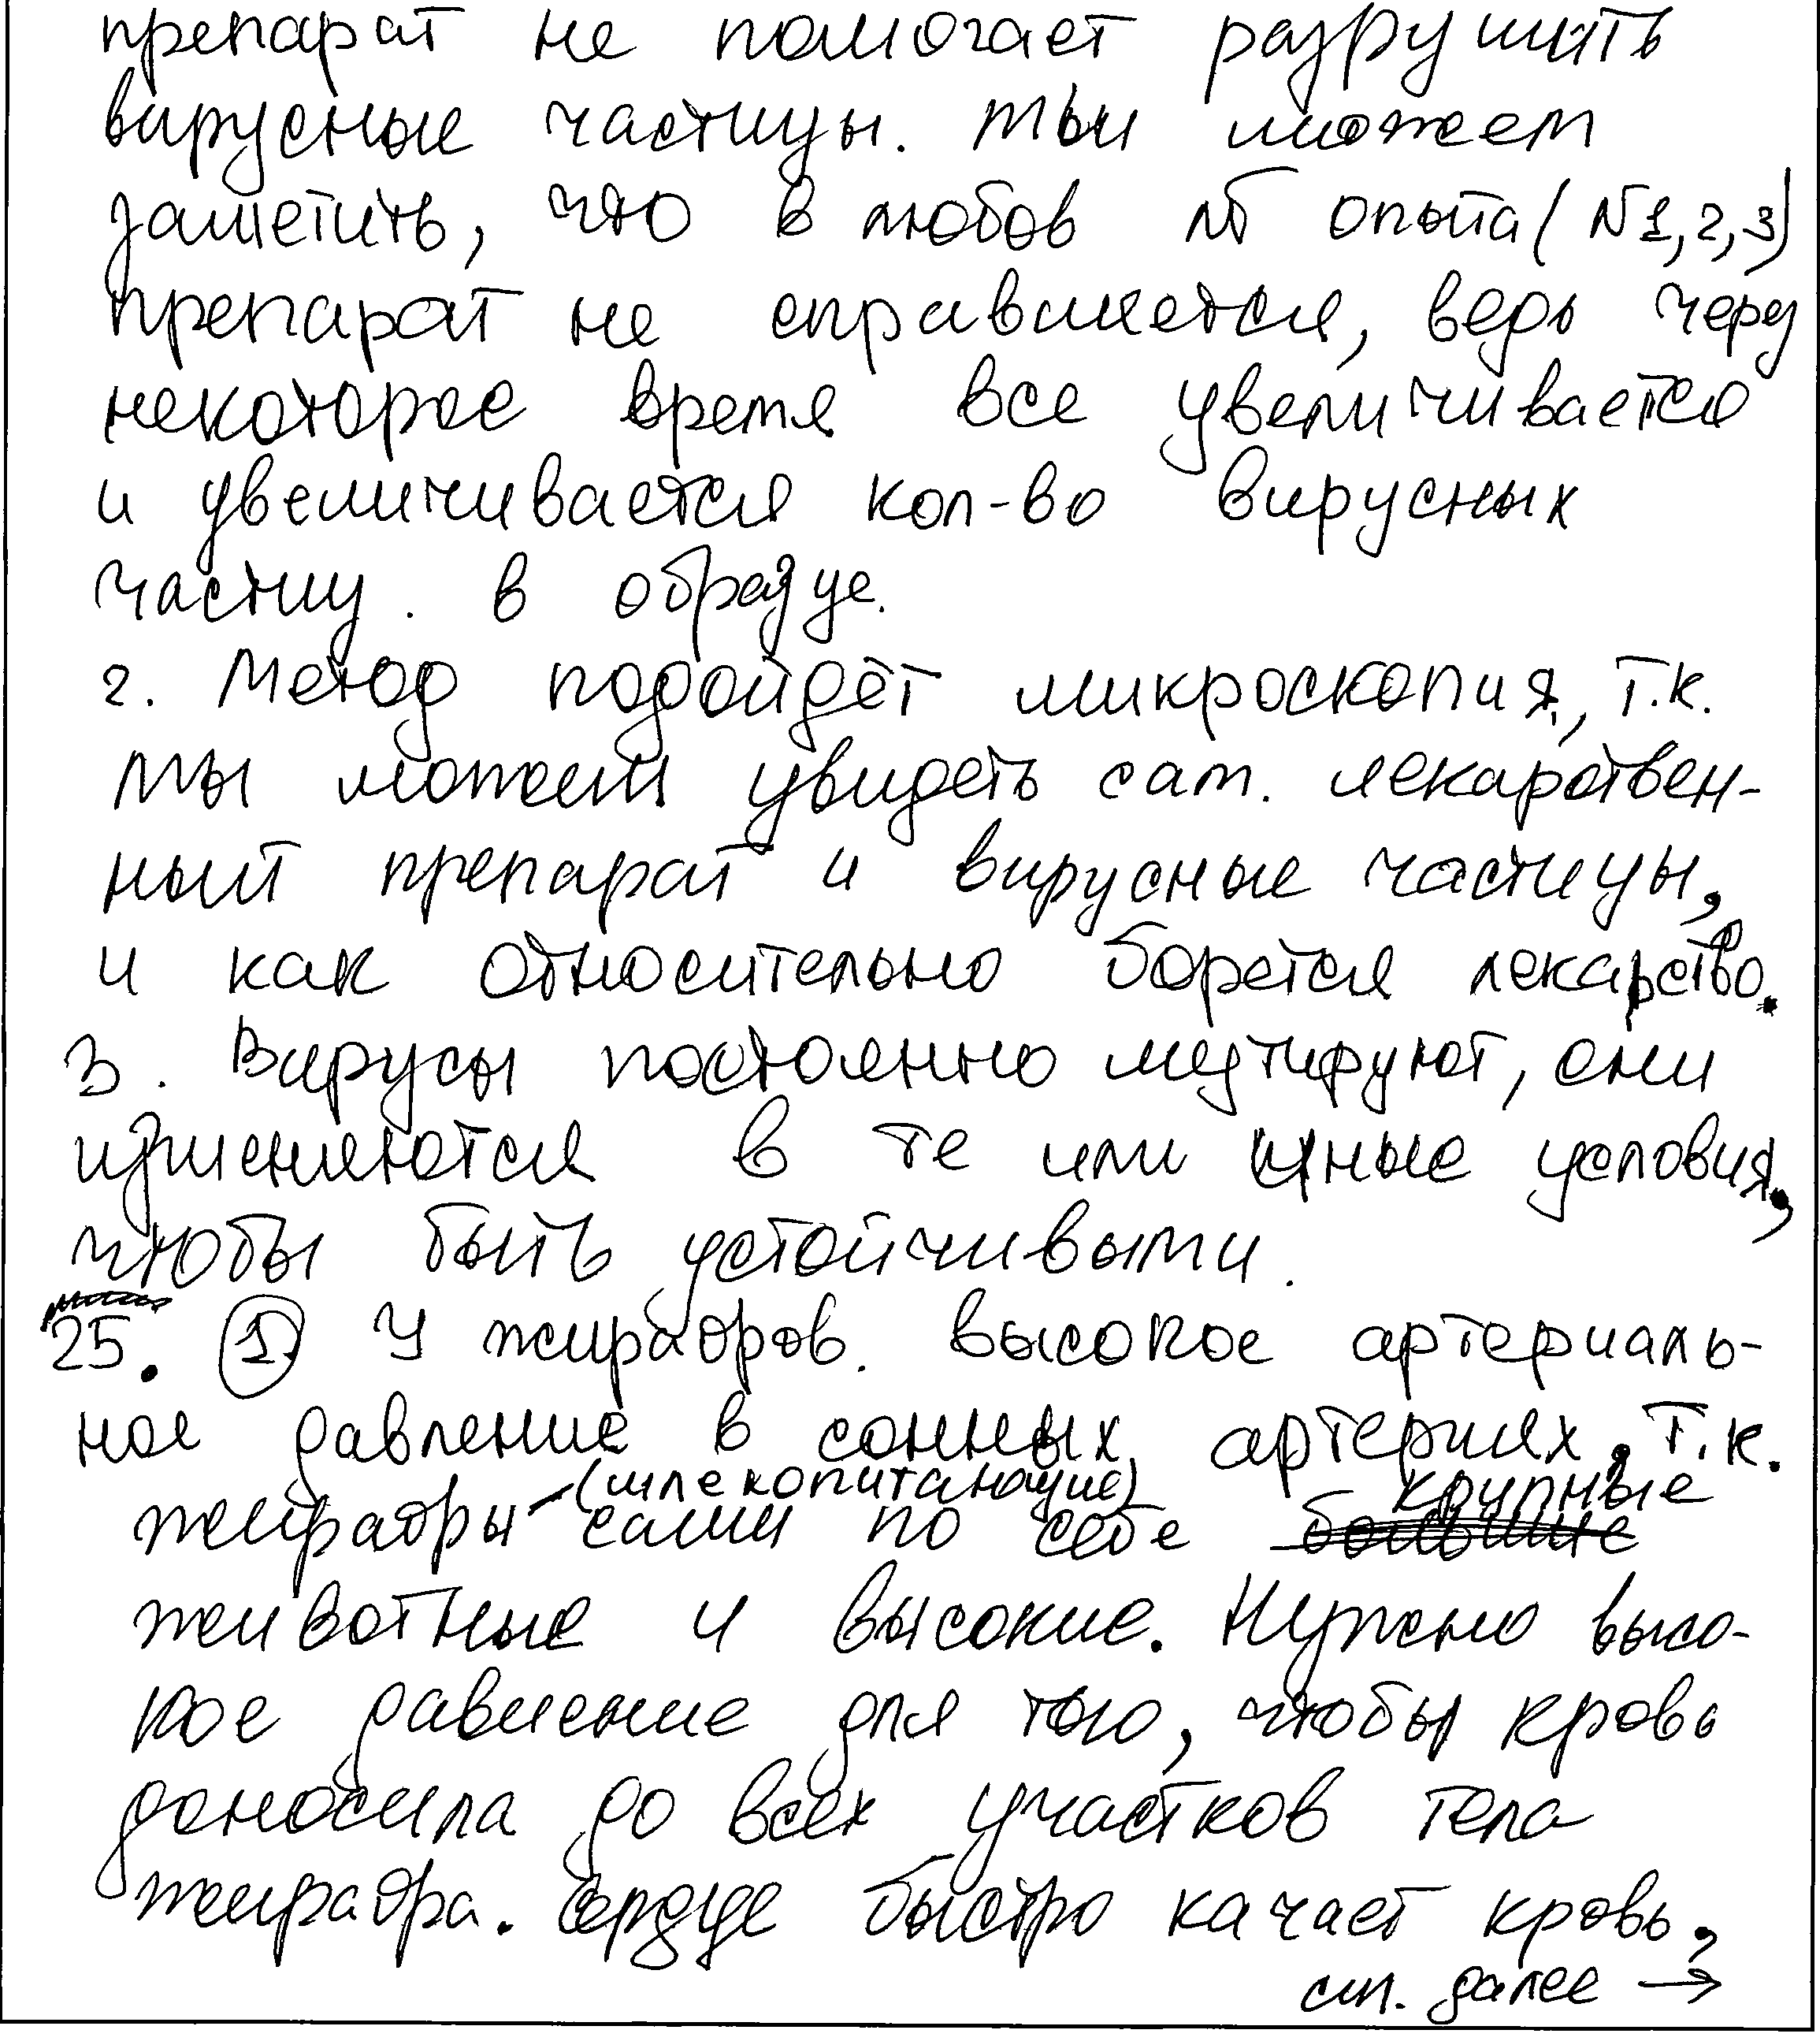 препарат не помогает разрушить
вирусные частицы. Мы можем
заметить, что в любов опыта (№1,2,3)
препарат не справляется, ведь через
некоторое время все увеличивается
и увеличивается кол-во вирусных
частиц. в образце.
2. Метод подойдёт микроскопия, т.к.
мы можем увидеть сам. лекарствен-
ный препарат и вирусные частицы,
и как относительно борется лекарство.
3. Вирусы постоянно мутируют, они
изменяются в те или иные условия,
чтобы быть устойчивыми.
25. 1) У жирафов. высокое артериаль-
ное давление в сонных артериях, т.к.
жирафы (млекопитающие) сами по себе крупные
животные и высокие. Нужно высо-
кое давление для того, чтобы кровь
доносила до всех участков тела
жирафа. Сердце быстро качает кровь,
см. далее →